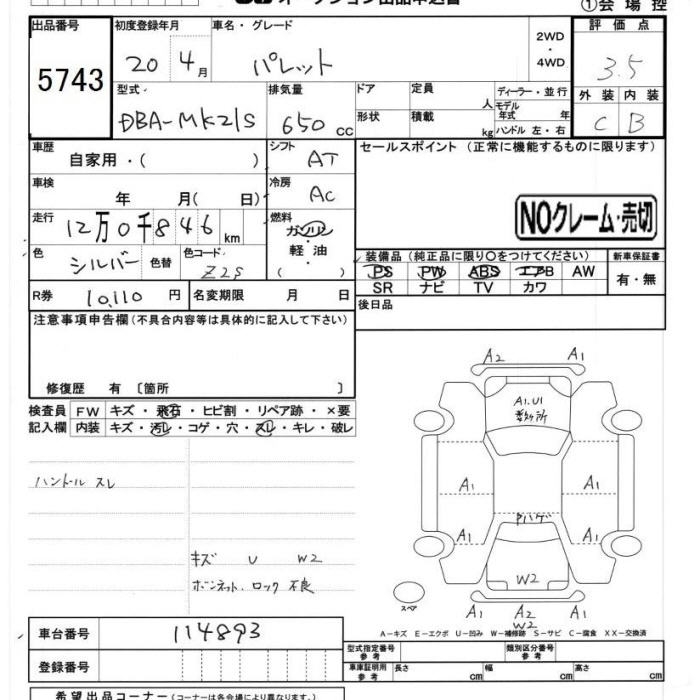 ①会場控
出品番号 初度登録年月 車名・グレード 2WD・4WD 評価点
5743 20 4月 パレット 3.5
型式 排気量 ドア 定員 人 ディーラー・並行 外装 内装
DBA-MK21S 650 CC 形状 積載 kg モデル年式 年 ハンドル 左・右 C B
車歴 自家用・( ) シフト AT セールスポイント (正常に機能するものに限ります)
車検 年 月( 日) 冷房 AC
NOクレーム・売切
走行 12万0千846 km 燃料 ガソリン・軽油 ( )
色 シルバー 色替 色コード Z2S
装備品 (純正品に限り○をつけてください) 新車保証書
PS PW ABS エアB AW 有・無
SR ナビ TV カワ
R券 10,110 円 名変期限 月 日 後日品
注意事項申告欄(不具合内容等は具体的に記入して下さい)
修復歴 有 〔箇所 〕
検査員 FW キズ・飛石・ヒビ割・リペア跡・×要
記入欄 内装 キズ・汚レ・コゲ・穴・スレ・キレ・破レ
ハンドル スレ
キズ U W2
ボンネット ロック 不良
A2 A1
A1.U1
A1 A1
Pハゲ
A1 A1
W2
スペア
A1 A2 A1
W2
A-キズ E-エクボ U-凹み W-補修跡 S-サビ C-腐食 XX-交換済
車台番号 114893
登録番号
型式指定番号 参考 類別区分番号 参考
車庫証明用 参考 長さ cm 幅 cm 高さ cm
希望出品コーナー (コーナーは各会場により異なります。)